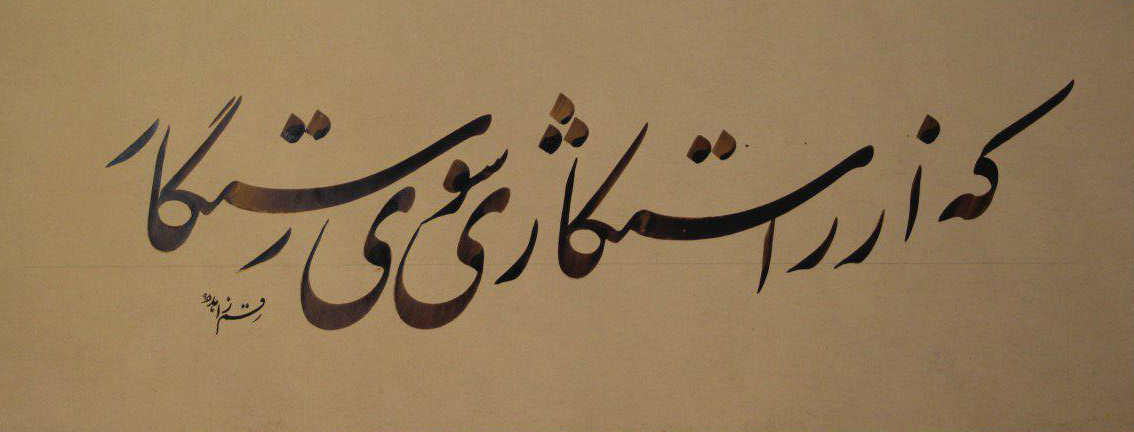 که از راستکاری شوی رستگار
رقم